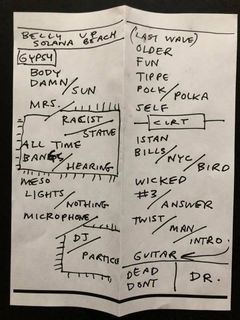 BELLY UP
SOLANA BEACH
GYPSY
BODY
DAMN / SUN
MRS.
RACIST
STATUE
ALL TIME
BANGS / HEARING
MESO
LIGHTS / NOTHING
MICROPHONE
DJ
PARTICO
(LAST WAVE)
OLDER
FUN
TIPPE
POLK / POLKA
SELF
CURT
ISTAN
BILLS / NYC / BIRD
WICKED
#3 / ANSWER
TWIST / MAN / INTRO
GUITAR
DEAD
DONT
DR.